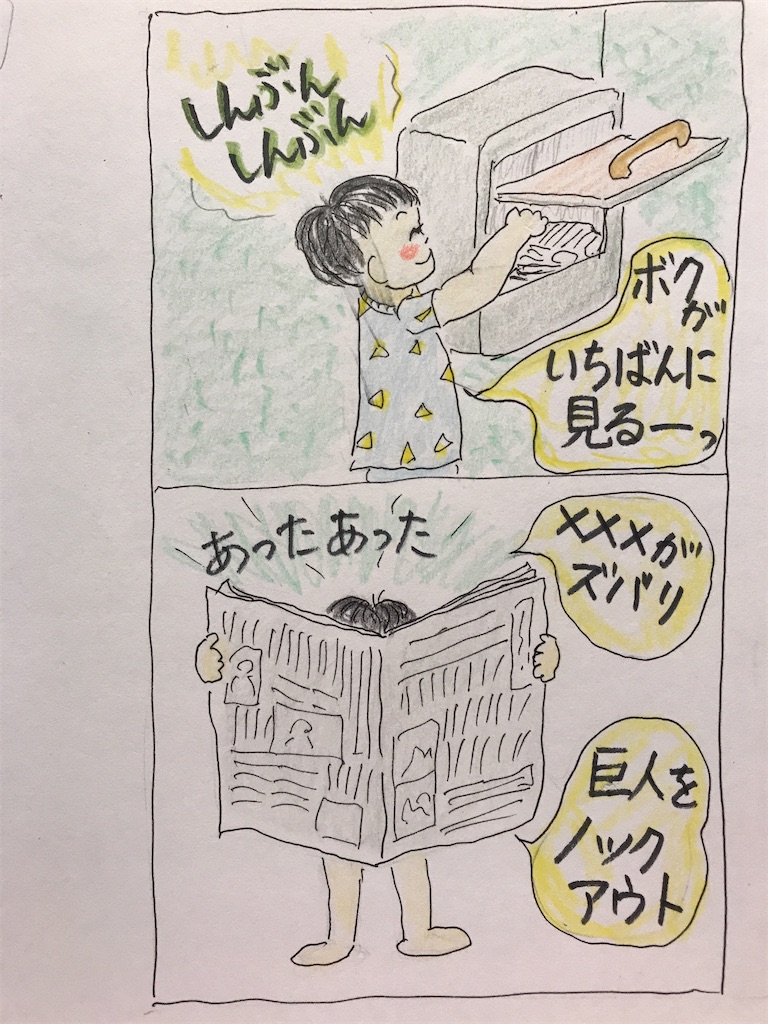 しんぶん
しんぶん
ボク
が
いちばんに
見るーっ
あったあった
×××が
ズバリ
巨人を
ノック
アウト